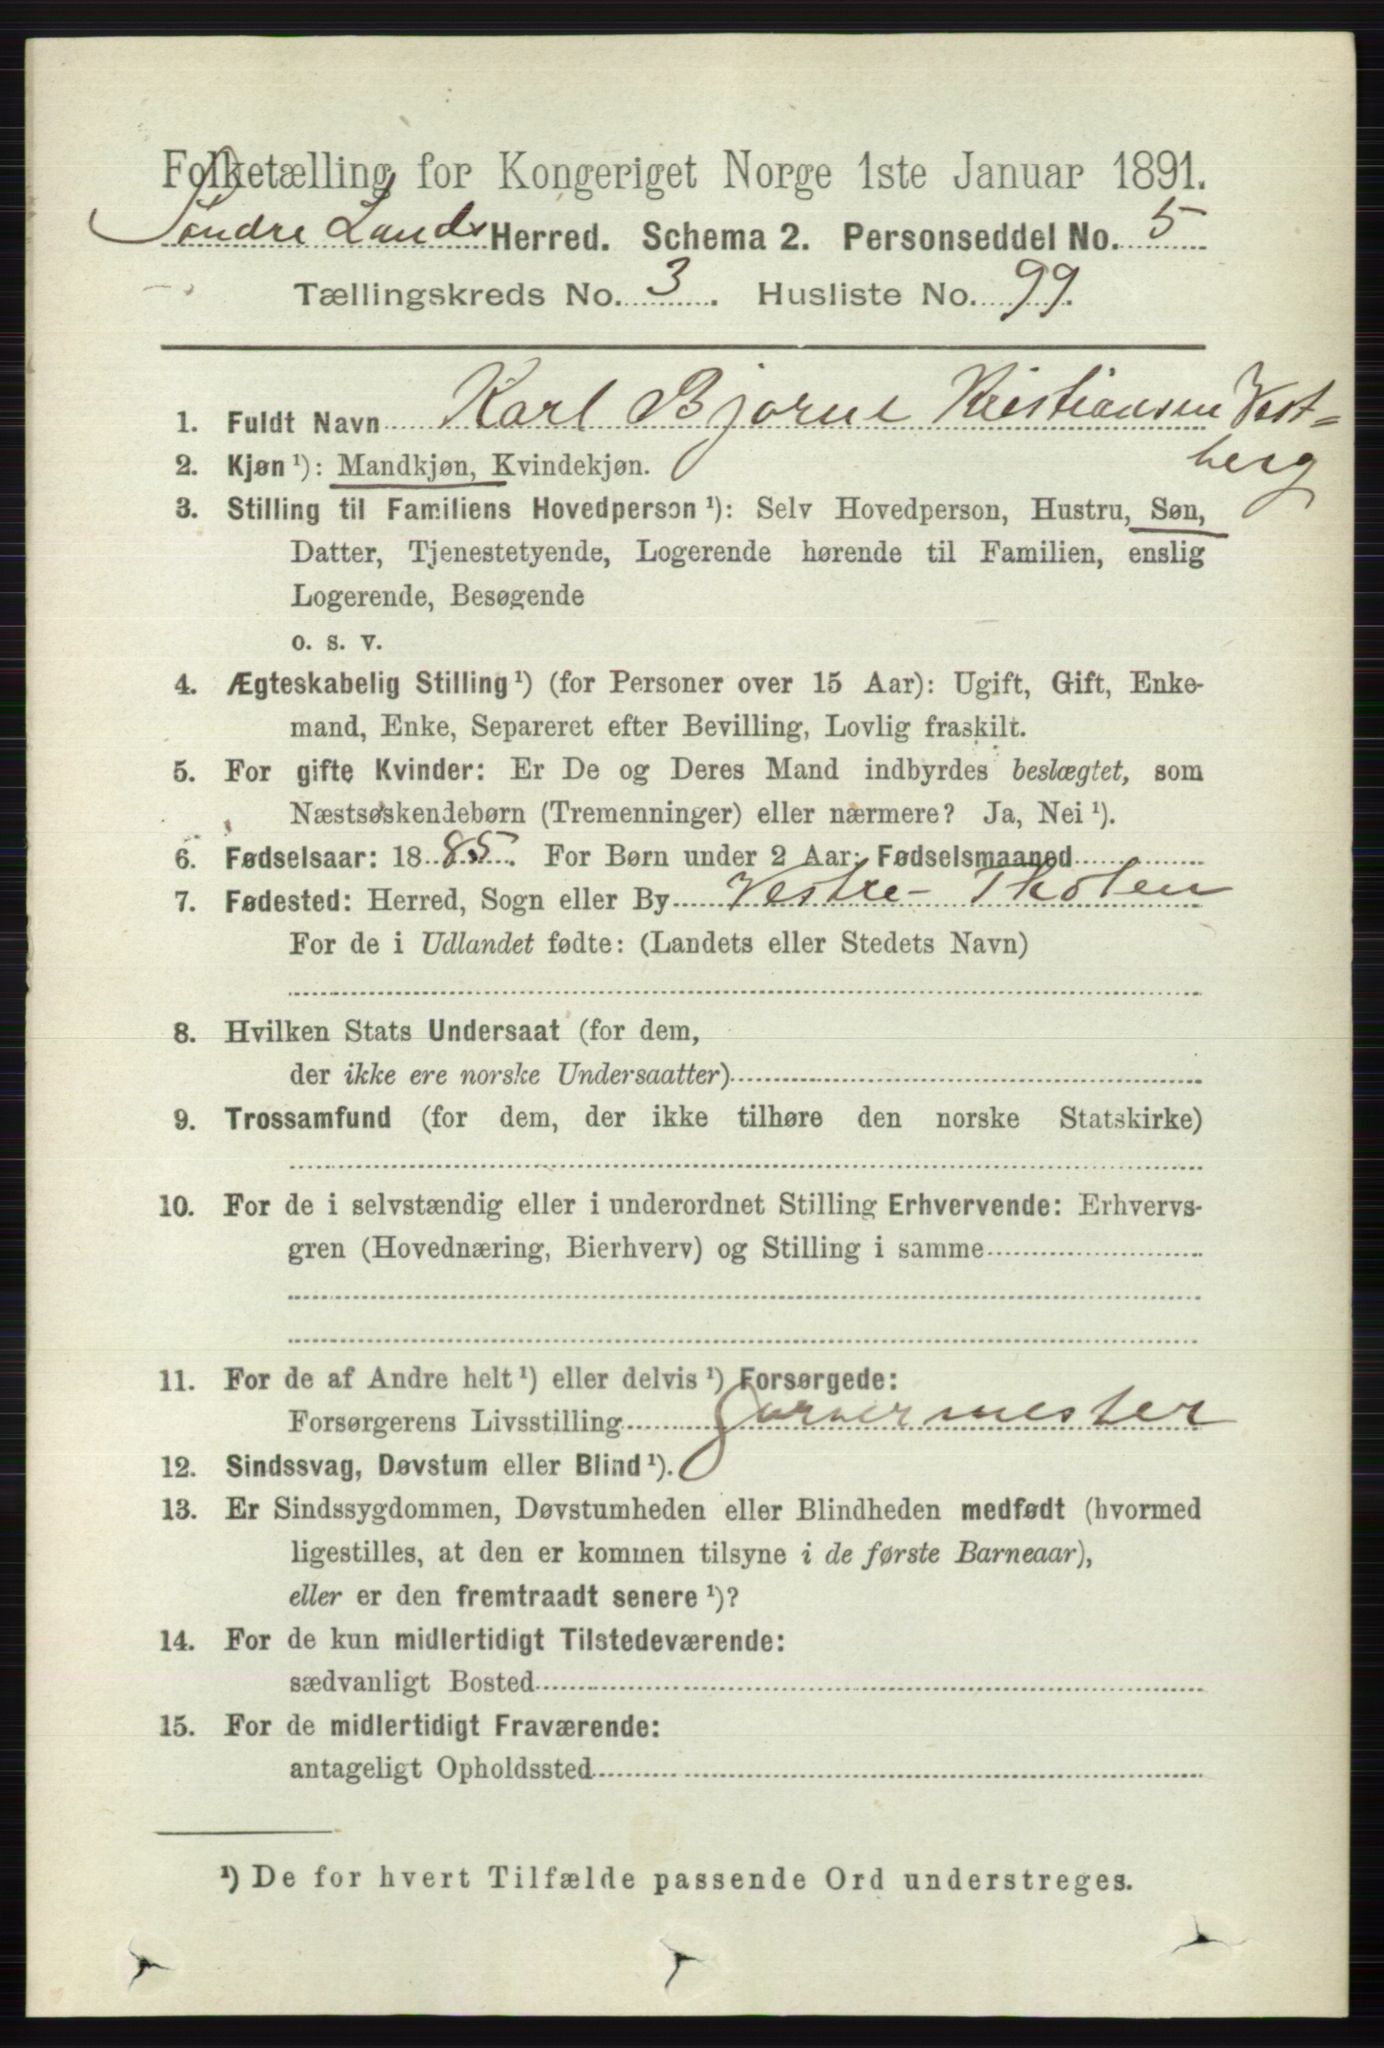 Folketælling for Kongeriget Norge 1ste Januar 1891.
Søndre Lands Herred. Schema 2. Personseddel No. 5
Tællingskreds No. 3. Husliste No. 99.
1. Fuldt Navn Karl Bjarne Kristiansen Vest=
berg
2. Kjøn ¹): Mandkjøn, Kvindekjøn.
3. Stilling til Familiens Hovedperson ¹): Selv Hovedperson, Hustru, Søn,
Datter, Tjenestetyende, Logerende hørende til Familien, enslig
Logerende, Besøgende
o. s. v.
4. Ægteskabelig Stilling ¹) (for Personer over 15 Aar): Ugift, Gift, Enke-
mand, Enke, Separeret efter Bevilling, Lovlig fraskilt.
5. For gifte Kvinder: Er De og Deres Mand indbyrdes beslægtet, som
Næstsøskendebørn (Tremenninger) eller nærmere? Ja, Nei ¹).
6. Fødselsaar: 1885. For Børn under 2 Aar: Fødselsmaaned
7. Fødested: Herred, Sogn eller By Vestre-Thoten
For de i Udlandet fødte: (Landets eller Stedets Navn)
8. Hvilken Stats Undersaat (for dem,
der ikke ere norske Undersaatter)
9. Trossamfund (for dem, der ikke tilhøre den norske Statskirke)
10. For de i selvstændig eller i underordnet Stilling Erhvervende: Erhvervs-
gren (Hovednæring, Bierhverv) og Stilling i samme
11. For de af Andre helt ¹) eller delvis ¹) Forsørgede:
Forsørgerens Livsstilling Garvermester
12. Sindssvag, Døvstum eller Blind ¹).
13. Er Sindssygdommen, Døvstumheden eller Blindheden medfødt (hvormed
ligestilles, at den er kommen tilsyne i de første Barneaar),
eller er den fremtraadt senere ¹)?
14. For de kun midlertidigt Tilstedeværende:
sædvanligt Bosted
15. For de midlertidigt Fraværende:
antageligt Opholdssted
¹) De for hvert Tilfælde passende Ord understreges.